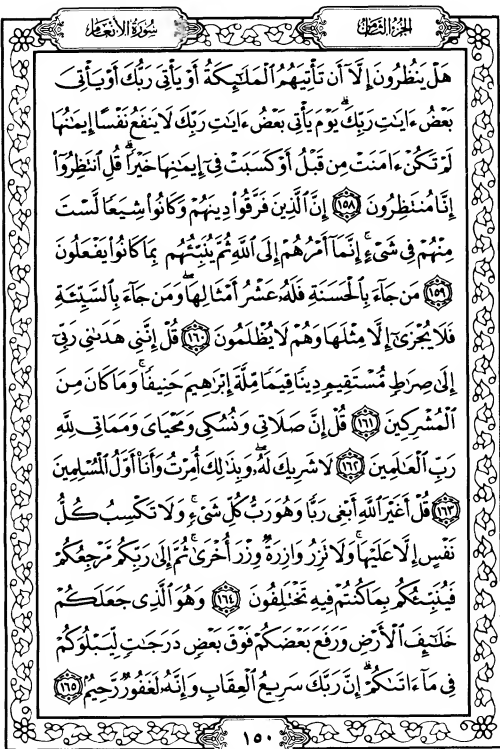 سُورَةُ الأَنْعَام
الجُزْءُ الثَّامِنُ
هَلْ يَنظُرُونَ إِلَّآ أَن تَأْتِيَهُمُ ٱلْمَلَٰٓئِكَةُ أَوْ يَأْتِىَ رَبُّكَ أَوْ يَأْتِىَ
بَعْضُ ءَايَٰتِ رَبِّكَۗ يَوْمَ يَأْتِى بَعْضُ ءَايَٰتِ رَبِّكَ لَا يَنفَعُ نَفْسًا إِيمَٰنُهَا
لَمْ تَكُنْ ءَامَنَتْ مِن قَبْلُ أَوْ كَسَبَتْ فِىٓ إِيمَٰنِهَا خَيْرًاۗ قُلِ ٱنتَظِرُوٓا۟
إِنَّا مُنتَظِرُونَ ١٥٨ إِنَّ ٱلَّذِينَ فَرَّقُوا۟ دِينَهُمْ وَكَانُوا۟ شِيَعًا لَّسْتَ
مِنْهُمْ فِى شَىْءٍۚ إِنَّمَآ أَمْرُهُمْ إِلَى ٱللَّهِ ثُمَّ يُنَبِّئُهُم بِمَا كَانُوا۟ يَفْعَلُونَ
١٥٩ مَن جَآءَ بِٱلْحَسَنَةِ فَلَهُۥ عَشْرُ أَمْثَالِهَاۖ وَمَن جَآءَ بِٱلسَّيِّئَةِ
فَلَا يُجْزَىٰٓ إِلَّا مِثْلَهَا وَهُمْ لَا يُظْلَمُونَ ١٦٠ قُلْ إِنَّنِى هَدَىٰنِى رَبِّىٓ
إِلَىٰ صِرَٰطٍ مُّسْتَقِيمٍ دِينًا قِيَمًا مِّلَّةَ إِبْرَٰهِيمَ حَنِيفًاۚ وَمَا كَانَ مِنَ
ٱلْمُشْرِكِينَ ١٦١ قُلْ إِنَّ صَلَاتِى وَنُسُكِى وَمَحْيَاىَ وَمَمَاتِى لِلَّهِ
رَبِّ ٱلْعَٰلَمِينَ ١٦٢ لَا شَرِيكَ لَهُۥۖ وَبِذَٰلِكَ أُمِرْتُ وَأَنَا۠ أَوَّلُ ٱلْمُسْلِمِينَ
١٦٣ قُلْ أَغَيْرَ ٱللَّهِ أَبْغِى رَبًّا وَهُوَ رَبُّ كُلِّ شَىْءٍۚ وَلَا تَكْسِبُ كُلُّ
نَفْسٍ إِلَّا عَلَيْهَاۚ وَلَا تَزِرُ وَازِرَةٌ وِزْرَ أُخْرَىٰۚ ثُمَّ إِلَىٰ رَبِّكُم مَّرْجِعُكُمْ
فَيُنَبِّئُكُم بِمَا كُنتُمْ فِيهِ تَخْتَلِفُونَ ١٦٤ وَهُوَ ٱلَّذِى جَعَلَكُمْ
خَلَٰٓئِفَ ٱلْأَرْضِ وَرَفَعَ بَعْضَكُمْ فَوْقَ بَعْضٍ دَرَجَٰتٍ لِّيَبْلُوَكُمْ
فِى مَآ ءَاتَىٰكُمْۗ إِنَّ رَبَّكَ سَرِيعُ ٱلْعِقَابِ وَإِنَّهُۥ لَغَفُورٌ رَّحِيمٌ ١٦٥
١٥٠